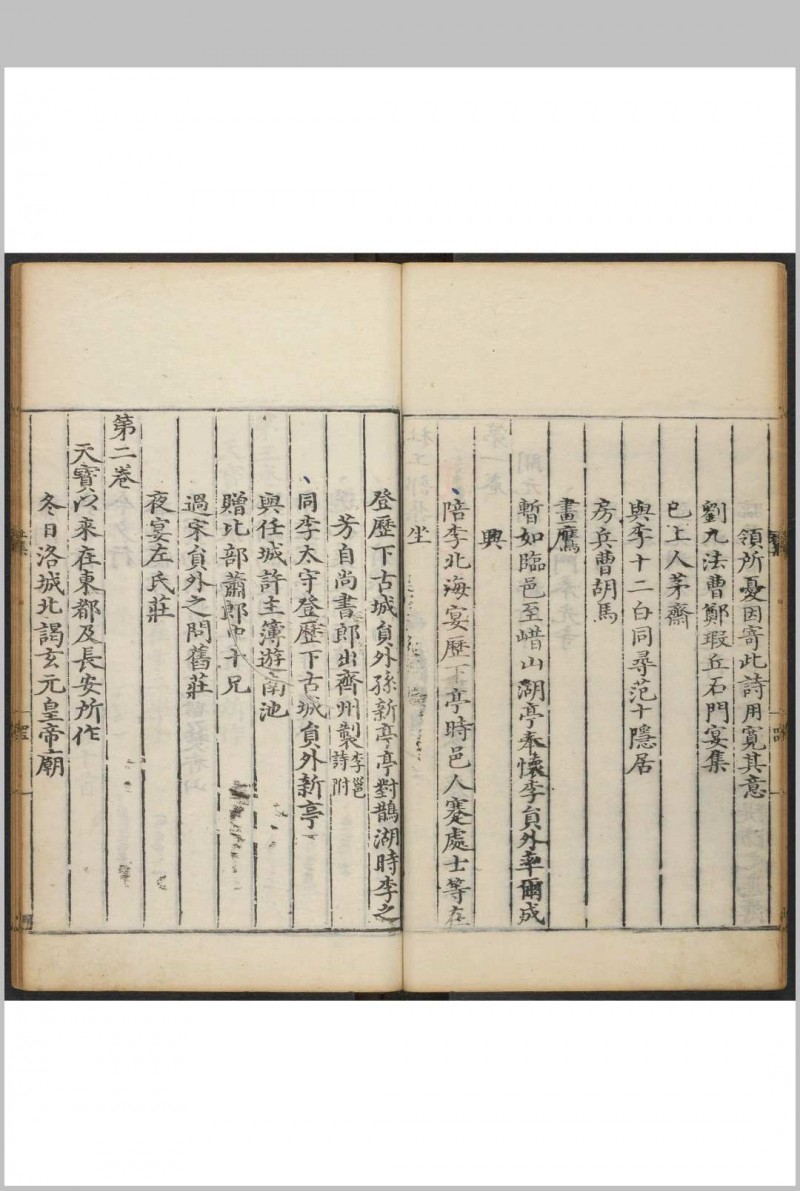 領所憂因寄此詩用寬其意
劉九法曹鄭瑕丘石門宴集
巳上人茅齋
與李十二白同尋范十隱居
房兵曹胡馬
畫鷹
暫如臨邑至㟙山湖亭奉懷李員外率爾成
興
陪李北海宴歷下亭時邑人蹇處士等在
坐
登歷下古城員外孫新亭亭對鵲湖時李之
芳自尚書郎出齊州製李邕詩附
同李太守登歷下古城員外新亭
與任城許主簿遊南池
贈比部蕭郎中十兄
過宋員外之問舊莊
夜宴左氏莊
第二卷
天寶以來在東都及長安所作
冬日洛城北謁玄元皇帝廟